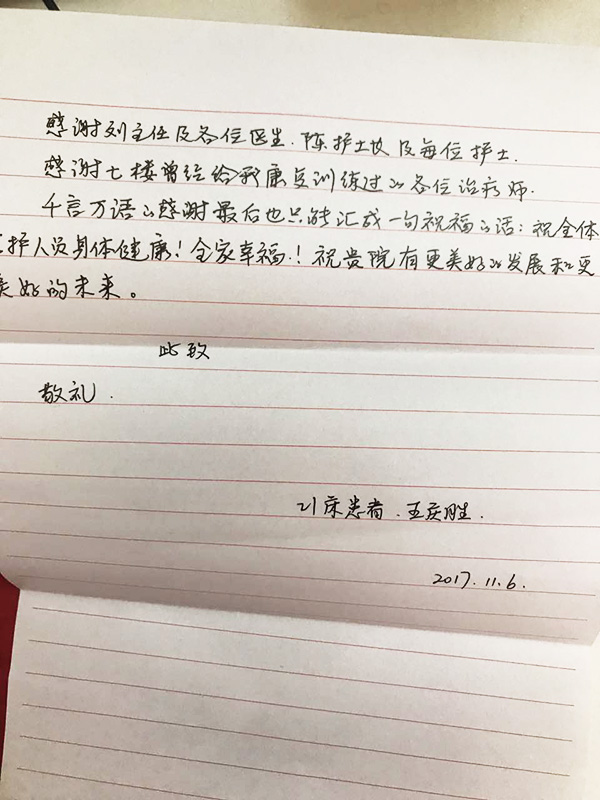 感谢刘主任及各位医生、陈护士长及每位护士.
感谢七楼曾经给我康复训练过的各位治疗师.
千言万语的感谢最后也只能汇成一句祝福的话：祝全体
医护人员身体健康！全家幸福！祝贵院有更美好的发展和更
美好的未来。
此致
敬礼.
21床患者.王庆胜.
2017.11.6.